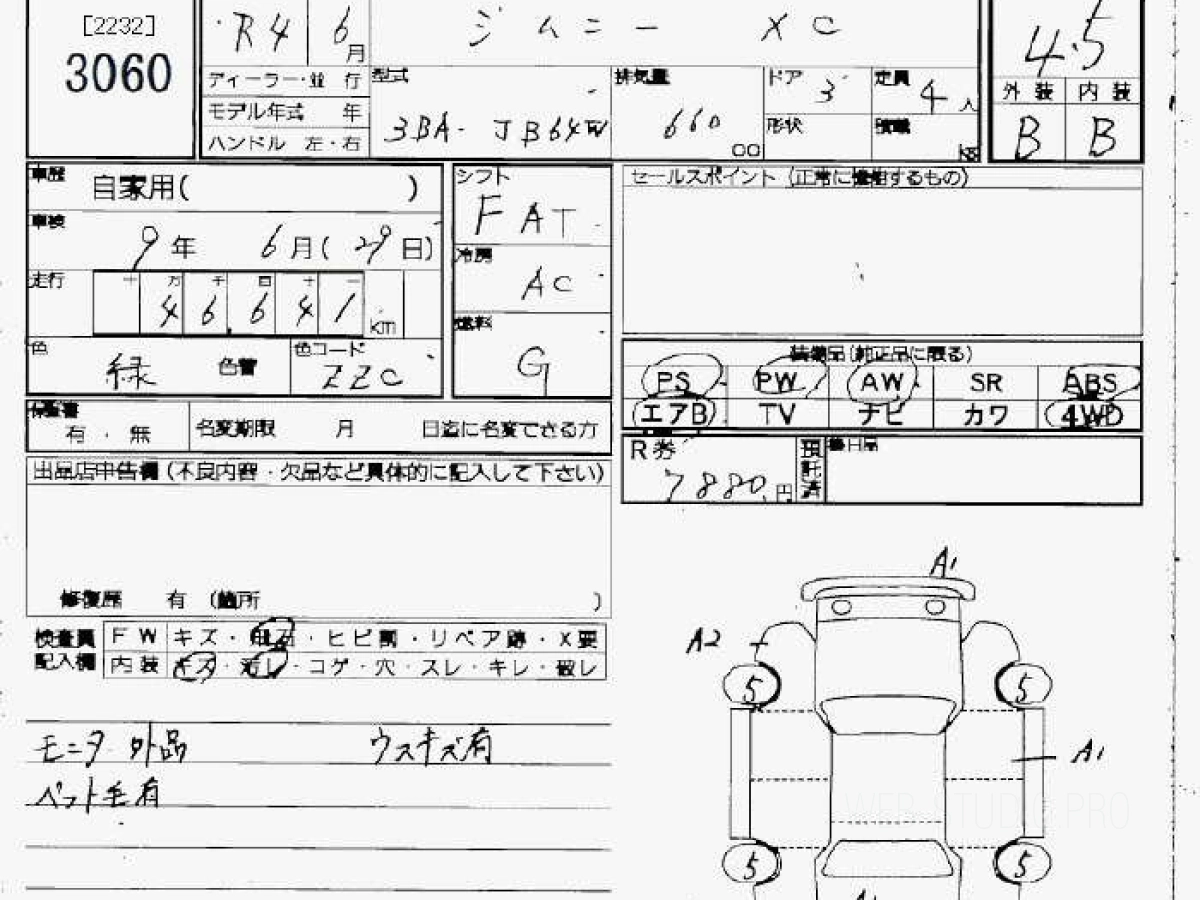 [2232]
3060
R4 6月
ジムニー XC
4.5
ディーラー・並 行
モデル年式 年
ハンドル 左・右
型式
3BA-JB64W
排気量
660
CC
ドア 3
形状
定員 4人
積載
kg
外装 内装
B B
車歴
自家用( )
車検
9年 6月(29日)
走行
十 万 千 百 十 一
4 6 6 4 1 km
色
緑
色替
色コード
ZZC
シフト
FAT
冷房
AC
燃料
G
セールスポイント (正常に機能するもの)
装備品(純正品に限る)
PS PW AW SR ABS
エアB TV ナビ カワ 4WD
保証書
有 . 無
名変期限 月 日迄に名変できる方
R券
7880円
預託済
出品店申告欄(不良内容・欠品など具体的に記入して下さい)
修復歴 有 (箇所 )
検査員記入欄
FW キズ・飛石・ヒビ割・リペア跡・X要
内装 キズ・汚レ・コゲ・穴・スレ・キレ・破レ
モニタ外品 ウスキズ有
ペット毛有
A1
A2
5 5
A1
5 5
WEB STUDIO PRO